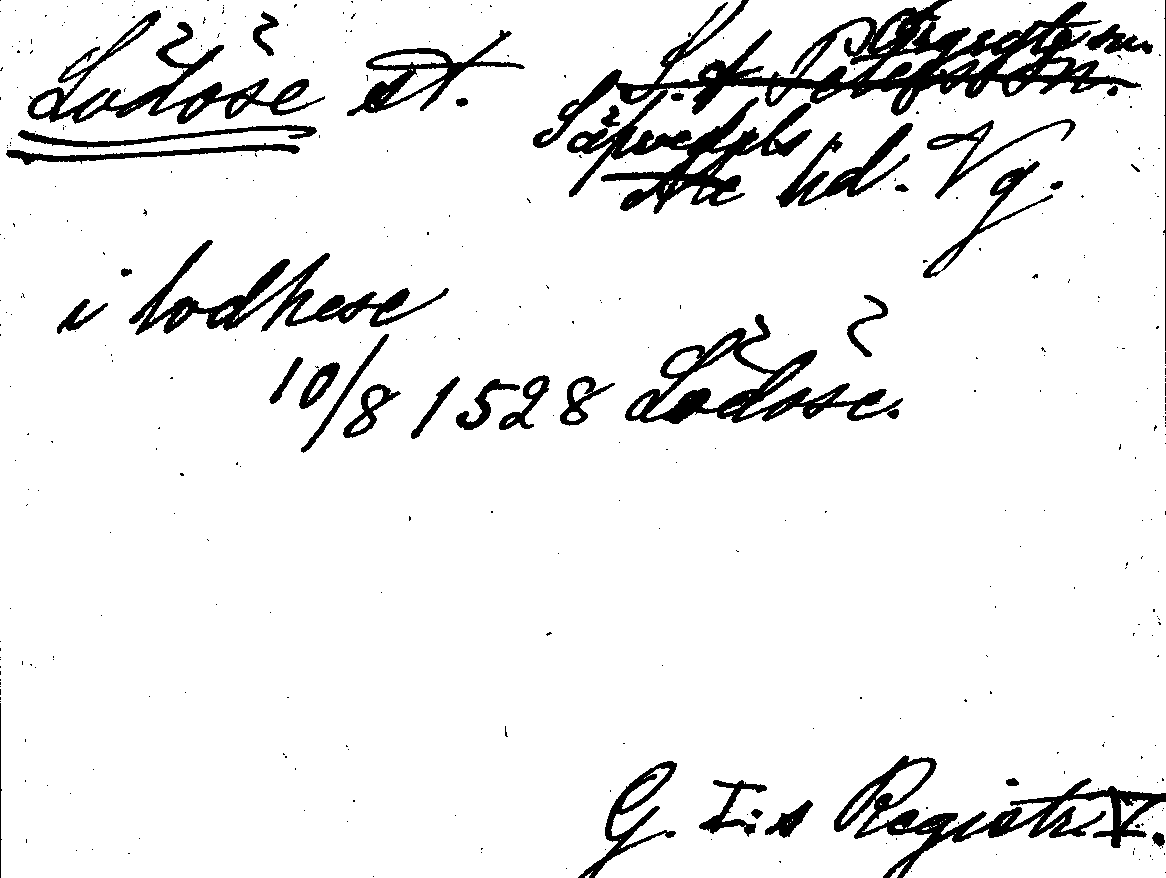 Lödöse st.
S. t Petersson.
Sävedals
Ale hd. Vg.
i lodhese
10/8 1528 Lödöse.
G. I:s Registr. V.